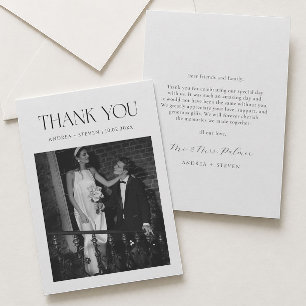 THANK YOU
ANDREA + STEVEN
Dear Friends and Family,
Thank you for celebrating our special day
with us. It was such an amazing day and
it would not have been the same without you.
We greatly appreciate your love, support, and
generous gifts. We will forever cherish
the memories we made together.
All our love,
Mr. & Mrs.
ANDREA + STEVEN